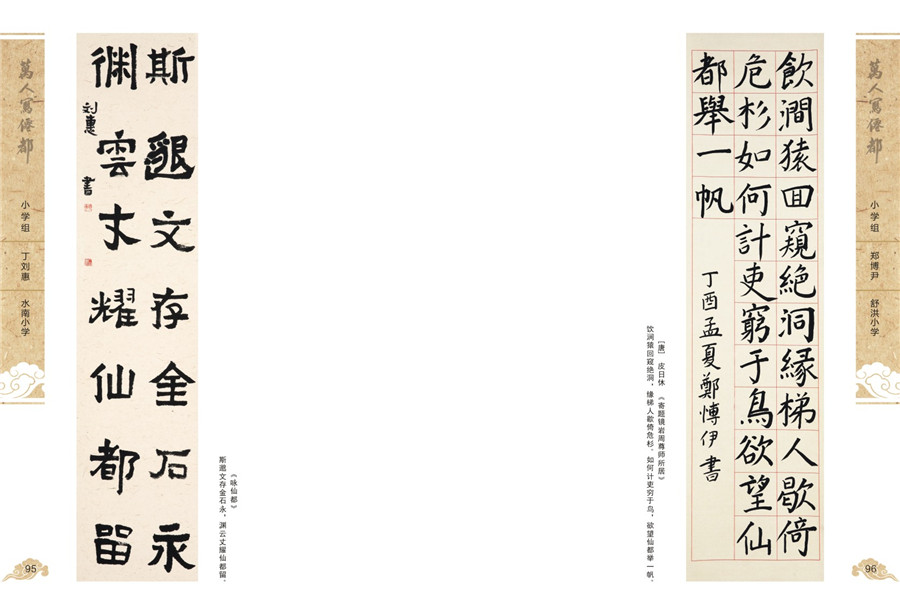 萬人寫僊都
小学组 丁刘惠 水南小学
95
斯邈文存金石永
渊雲丈耀仙都留
刘惠 書
《咏仙都》
斯邈文存金石永，渊云丈耀仙都留。
飲澗猿回窺絶洞緣梯人歇倚
危杉如何計吏窮于鳥欲望仙
都舉一帆
丁酉孟夏鄭博伊書
[唐] 皮日休 《寄题镜岩周尊师所居》
饮涧猿回窥绝洞，缘梯人歇倚危杉。如何计吏穷于鸟，欲望仙都举一帆。
萬人寫僊都
小学组 郑博尹 舒洪小学
96